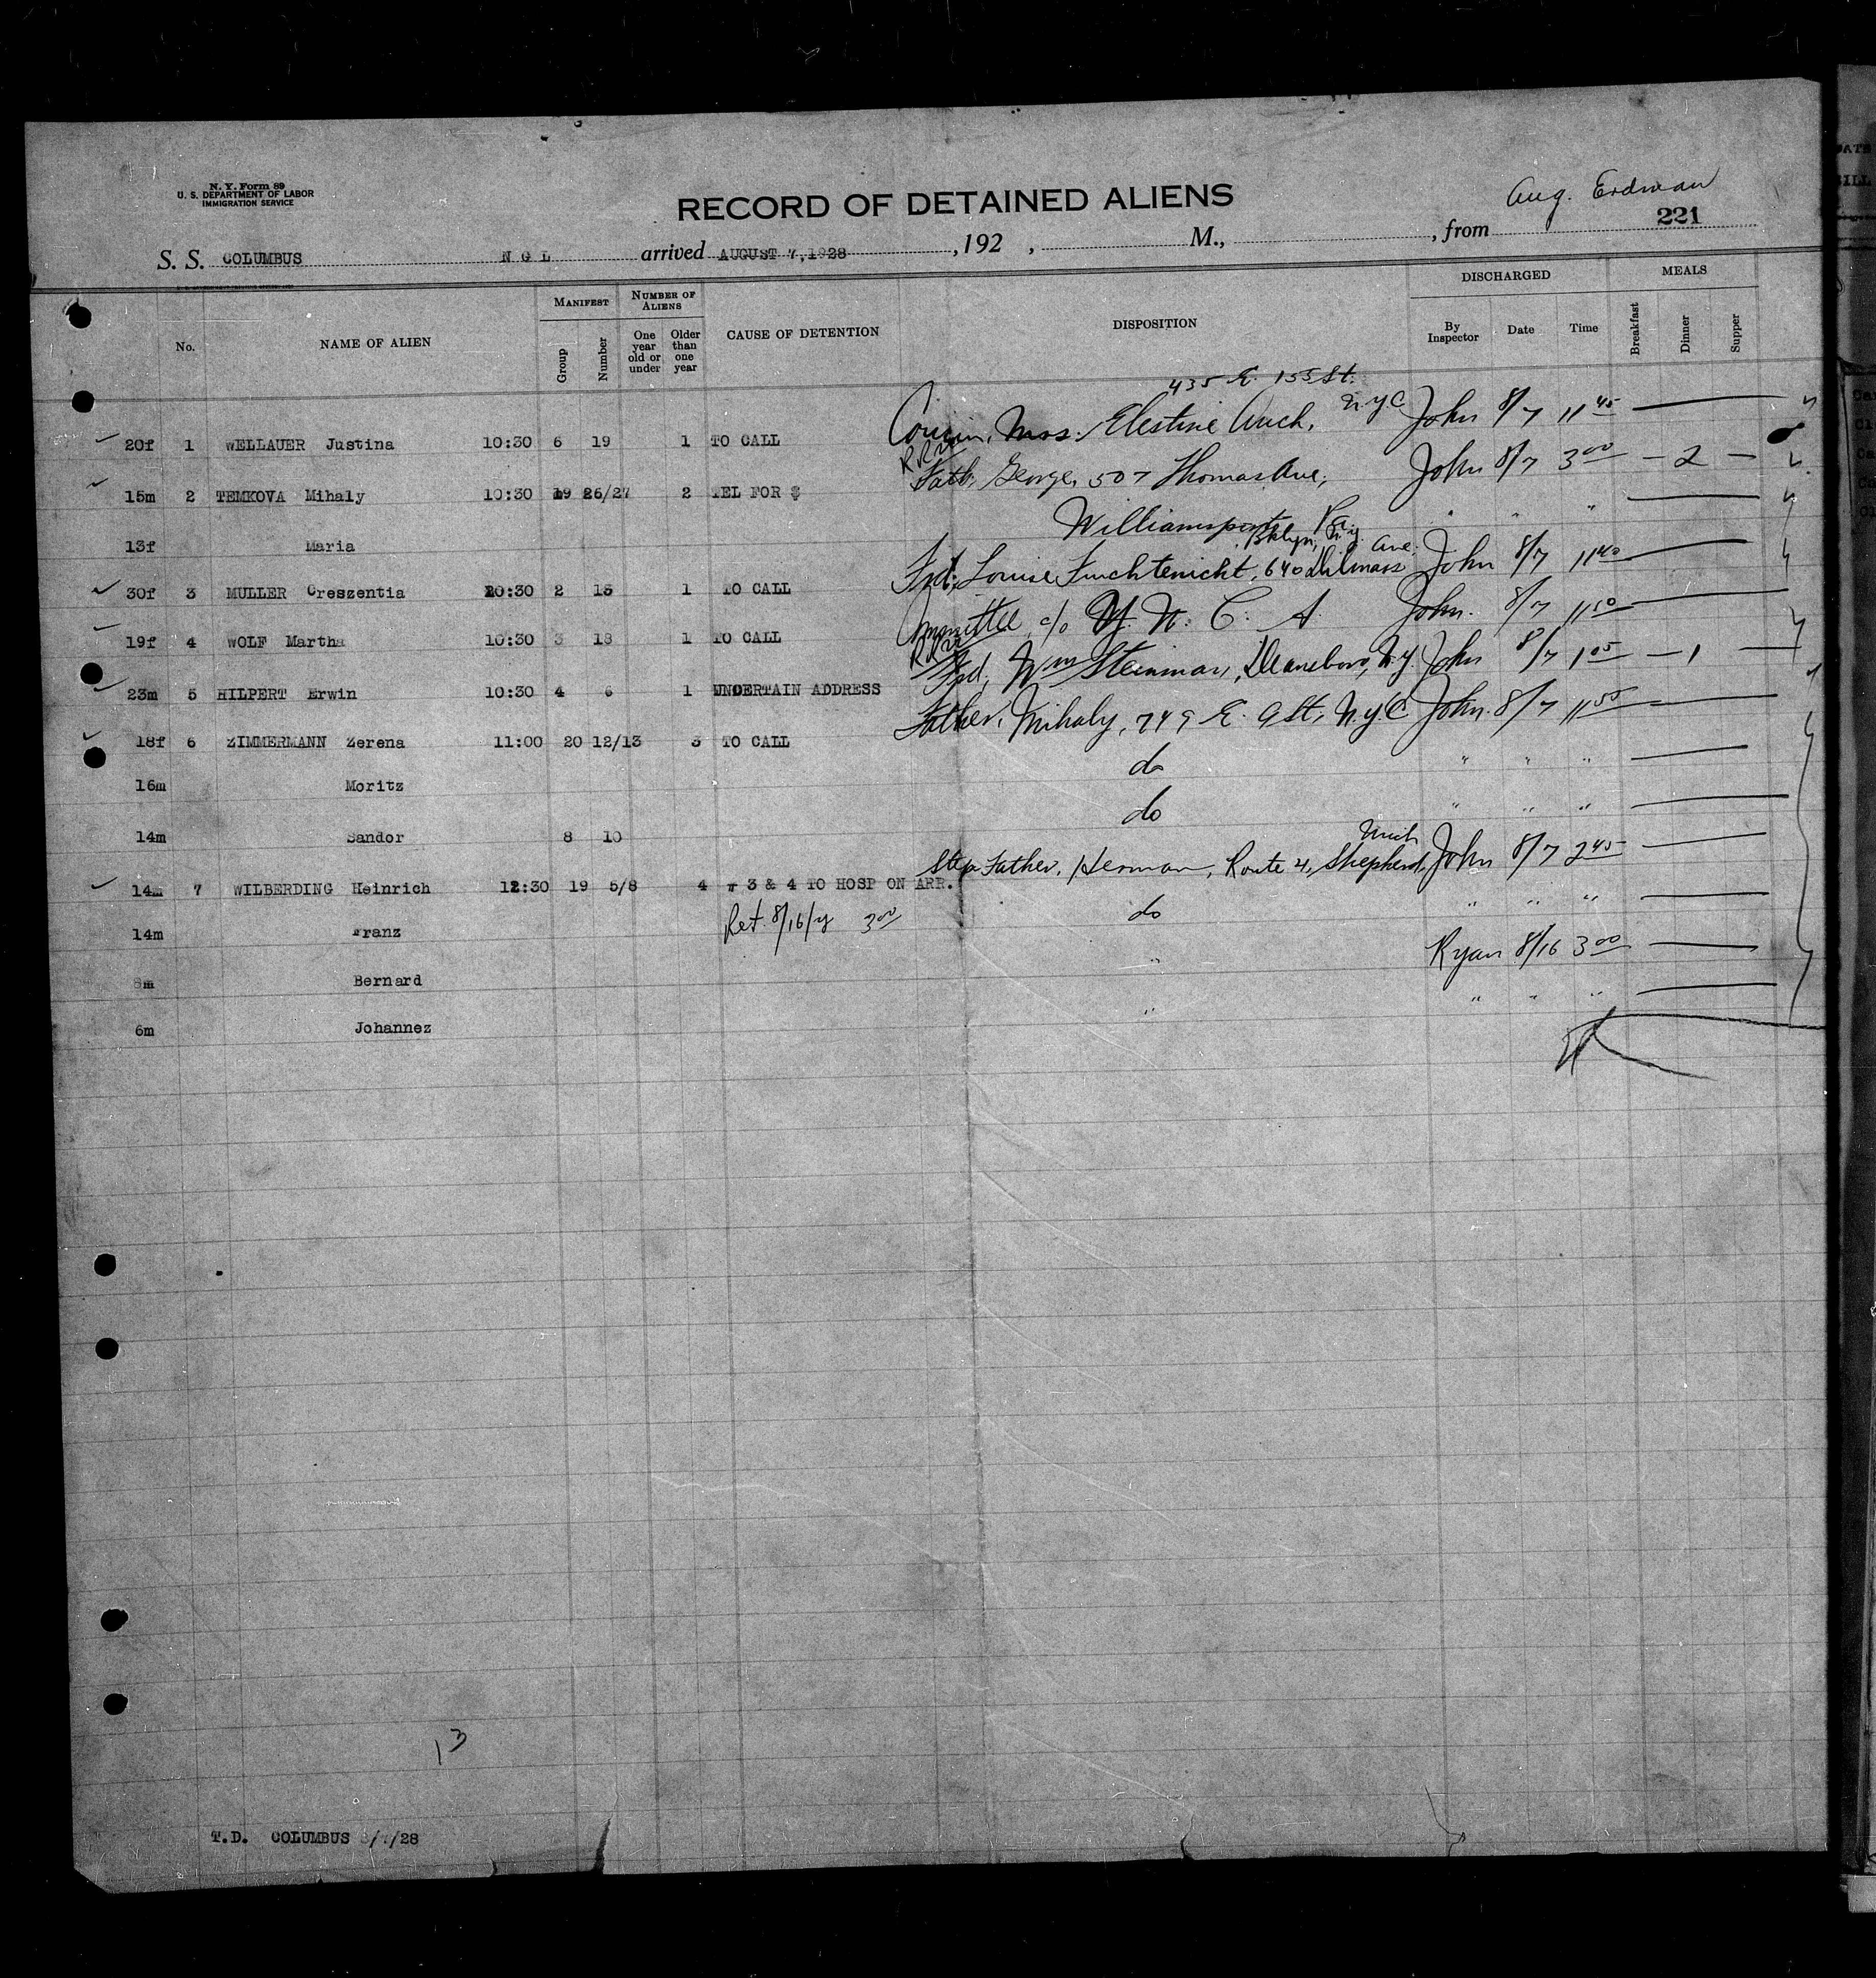 N. Y. Form 89
U. S. DEPARTMENT OF LABOR
IMMIGRATION SERVICE
RECORD OF DETAINED ALIENS
Aug. Erdman
221
S. S. COLUMBUS N G L arrived AUGUST 7, 1928 , 192 , M., , from
No. NAME OF ALIEN MANIFEST Group Number NUMBER OF ALIENS One year old or under Older than one year CAUSE OF DETENTION DISPOSITION DISCHARGED By Inspector Date Time MEALS Breakfast Dinner Supper
435 E. 155 St.
20f 1 WELLAUER Justina 10:30 6 19 1 TO CALL Cousin, Mrs. Elestine Auch, N.Y.C John 8/7 11 45
15m 2 TEMKOVA Mihaly 10:30 19 26/27 2 TEL FOR $ Fath, George, 507 Thomas Ave, John 8/7 3 00 - 2 -
13f Maria Williamsport Pa. " " "
Bklyn, N.Y.
30f 3 MULLER Creszentia 10:30 2 15 1 TO CALL Frd, Louise 640 Ave. John 8/7 11 40
19f 4 WOLF Martha 10:30 3 18 1 TO CALL Committee, c/o Y. W. C. A. John. 8/7 11 50
23m 5 HILPERT Erwin 10:30 4 6 1 UNCERTAIN ADDRESS Frd, Wm Steinman, Deansboro, N.Y. John 8/7 1 05 - 1
18f 6 ZIMMERMANN Zerena 11:00 20 12/13 3 TO CALL Father, Mihaly, 749 E. 9 St, N.Y.C John. 8/7 11 55
16m Moritz do " " "
14m Sandor 8 10 do " " "
Mich
14m 7 WILBERDING Heinrich 12:30 19 5/8 4 # 3 & 4 TO HOSP ON ARR. Step Father, Herman, Route 4, Shepherd, John 8/7 2 45
14m Franz Ret 8/16/ 3 00 do " " "
8m Bernard " Ryan 8/16 3 00
6m Johannez " " " "
13
T.D. COLUMBUS 8/7/28